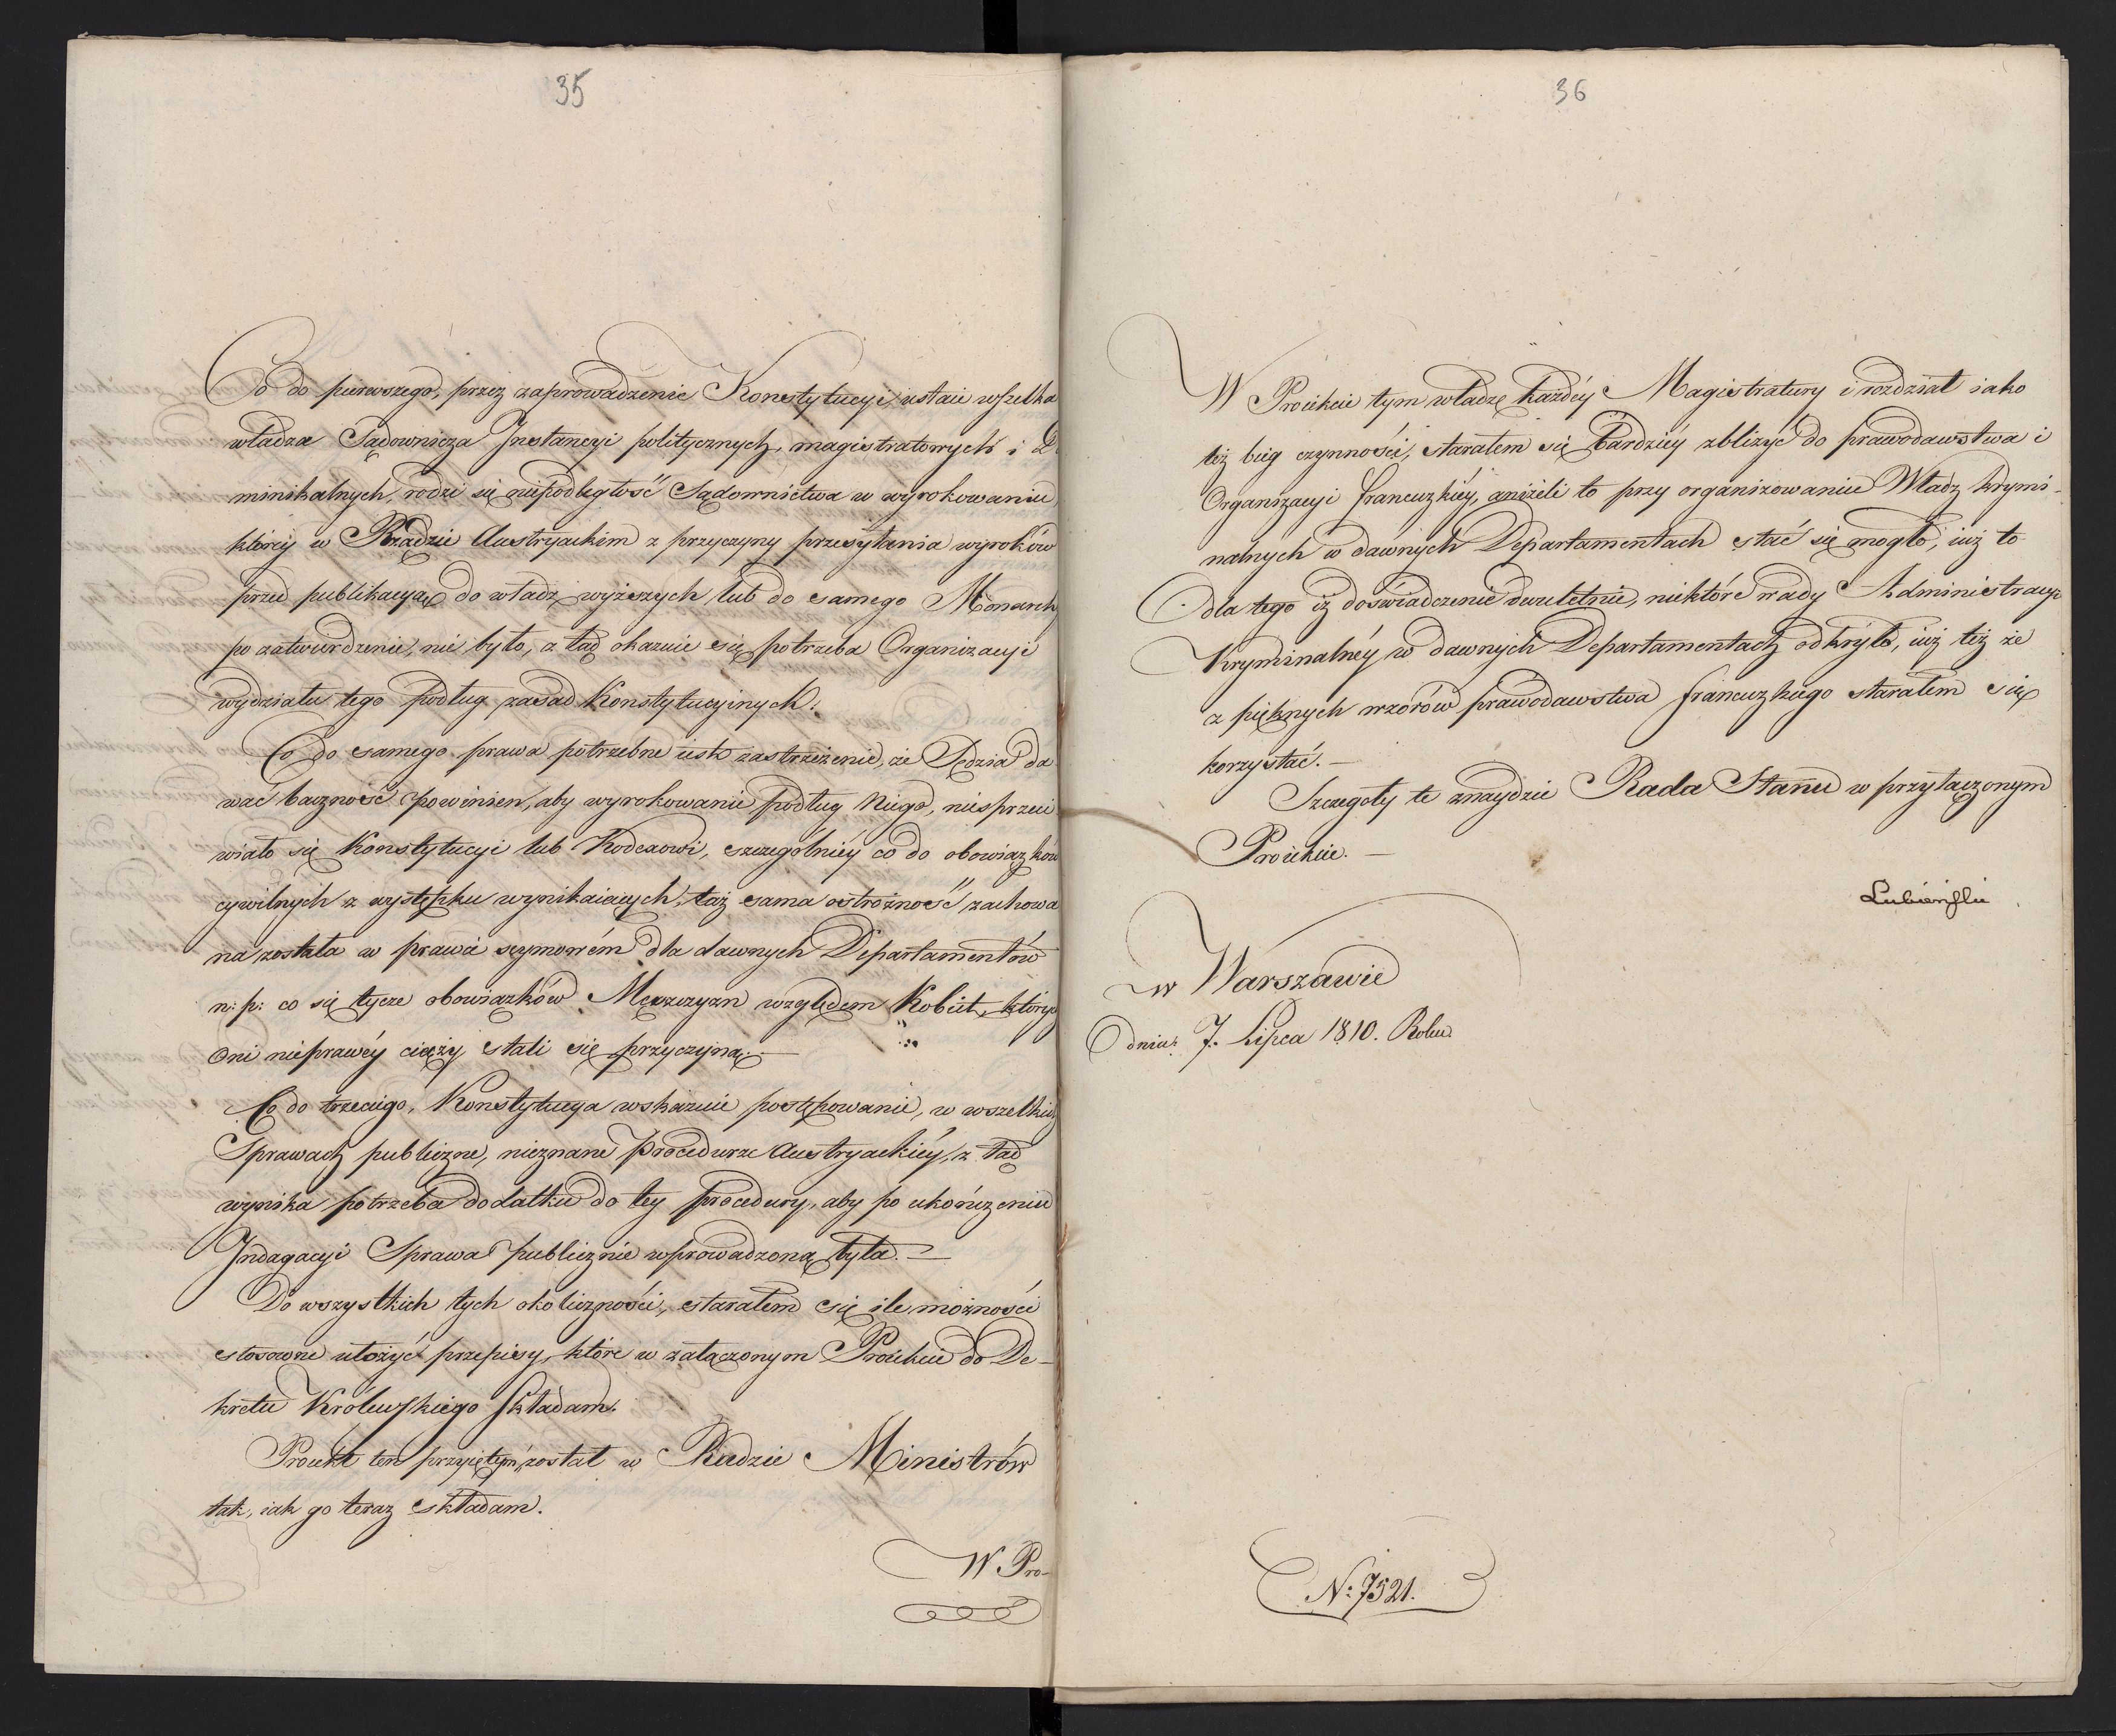 35
Co do pierwszego, przez zaprowadzenie Konstytucyi, ustaie wszelka
władza Sądownicza Jnstancyi politycznych, magistratowych i Do
minikalnych, rodzi się niepodległość Sądownictwa w wyrokowaniu,
któréy w Rządzie Austryackim z przyczyny przesyłania wyroków
przed publikacyą do władz wyższych lub do samego Monarchy
po zatwierdzenie, nie było, z tąd okazuie się potrzeba Organizacyi
wydziału tego podług zasad Konstytucyinych.
Co do samego prawa potrzebne iest zastrzeżenie, że Sędzia da
wać baczność powinien, aby wyrokowanie podług Niego, niesprzeci
wiało się Konstytucyi lub Kodexowi, szczególniéy co do obowiązków
cywilnych z występku wynikaiących, taż sama ostrożność zachowa
na została w prawie seymowém dla dawnych Departamentów
n: p: co się tycze obowiązków Męzczyzn względem Kobiet, których
Oni nieprawéy ciąży stali się przyczyną. —
Co do trzeciego, Konstytucya wskazuie postępowanie, w wszelkich
Sprawach publiczne, nieznane Procedurze Austryackiéy, z tąd
wynika potrzeba dodatku do tey procedury, aby po ukończeniu
Jndagacyi Sprawa publicznie wprowadzoną była. —
Do wszystkich tych okoliczności, starałem się ile możności
stosowne ułożyć przepisy, które w załączonym Proiekcie do De-
kretu Królewskiego składam.
Proiekt ten przyiętym został w Radzie Ministrów
tak, iak go teraz składam.
W Pro-
36
W Proiekcie tym władzę każdéy Magistratury i rozdział iako
też bieg czynności, starałem się bardziéy zbliżyć do prawodawstwa i
Organizacyi francuzkiéy, aniżeli to przy organizowaniu Władz krymi-
nalnych w dawnych Departamentach stać się mogło, iuż to
dla tego iż doświadczenie dwuletnie, niektóre wady Administracyi
Kryminalnéy w dawnych Departamentach odkryło, iuż też że
z pięknych wzorów prawodawstwa francuzkiego starałem się
korzystać. —
Szczegoły te znaydzie Rada Stanu w przyłączonym
Proiekcie. —
Lubieński
w Warszawie
dnia 7. Lipca 1810. Roku
N: 7521.